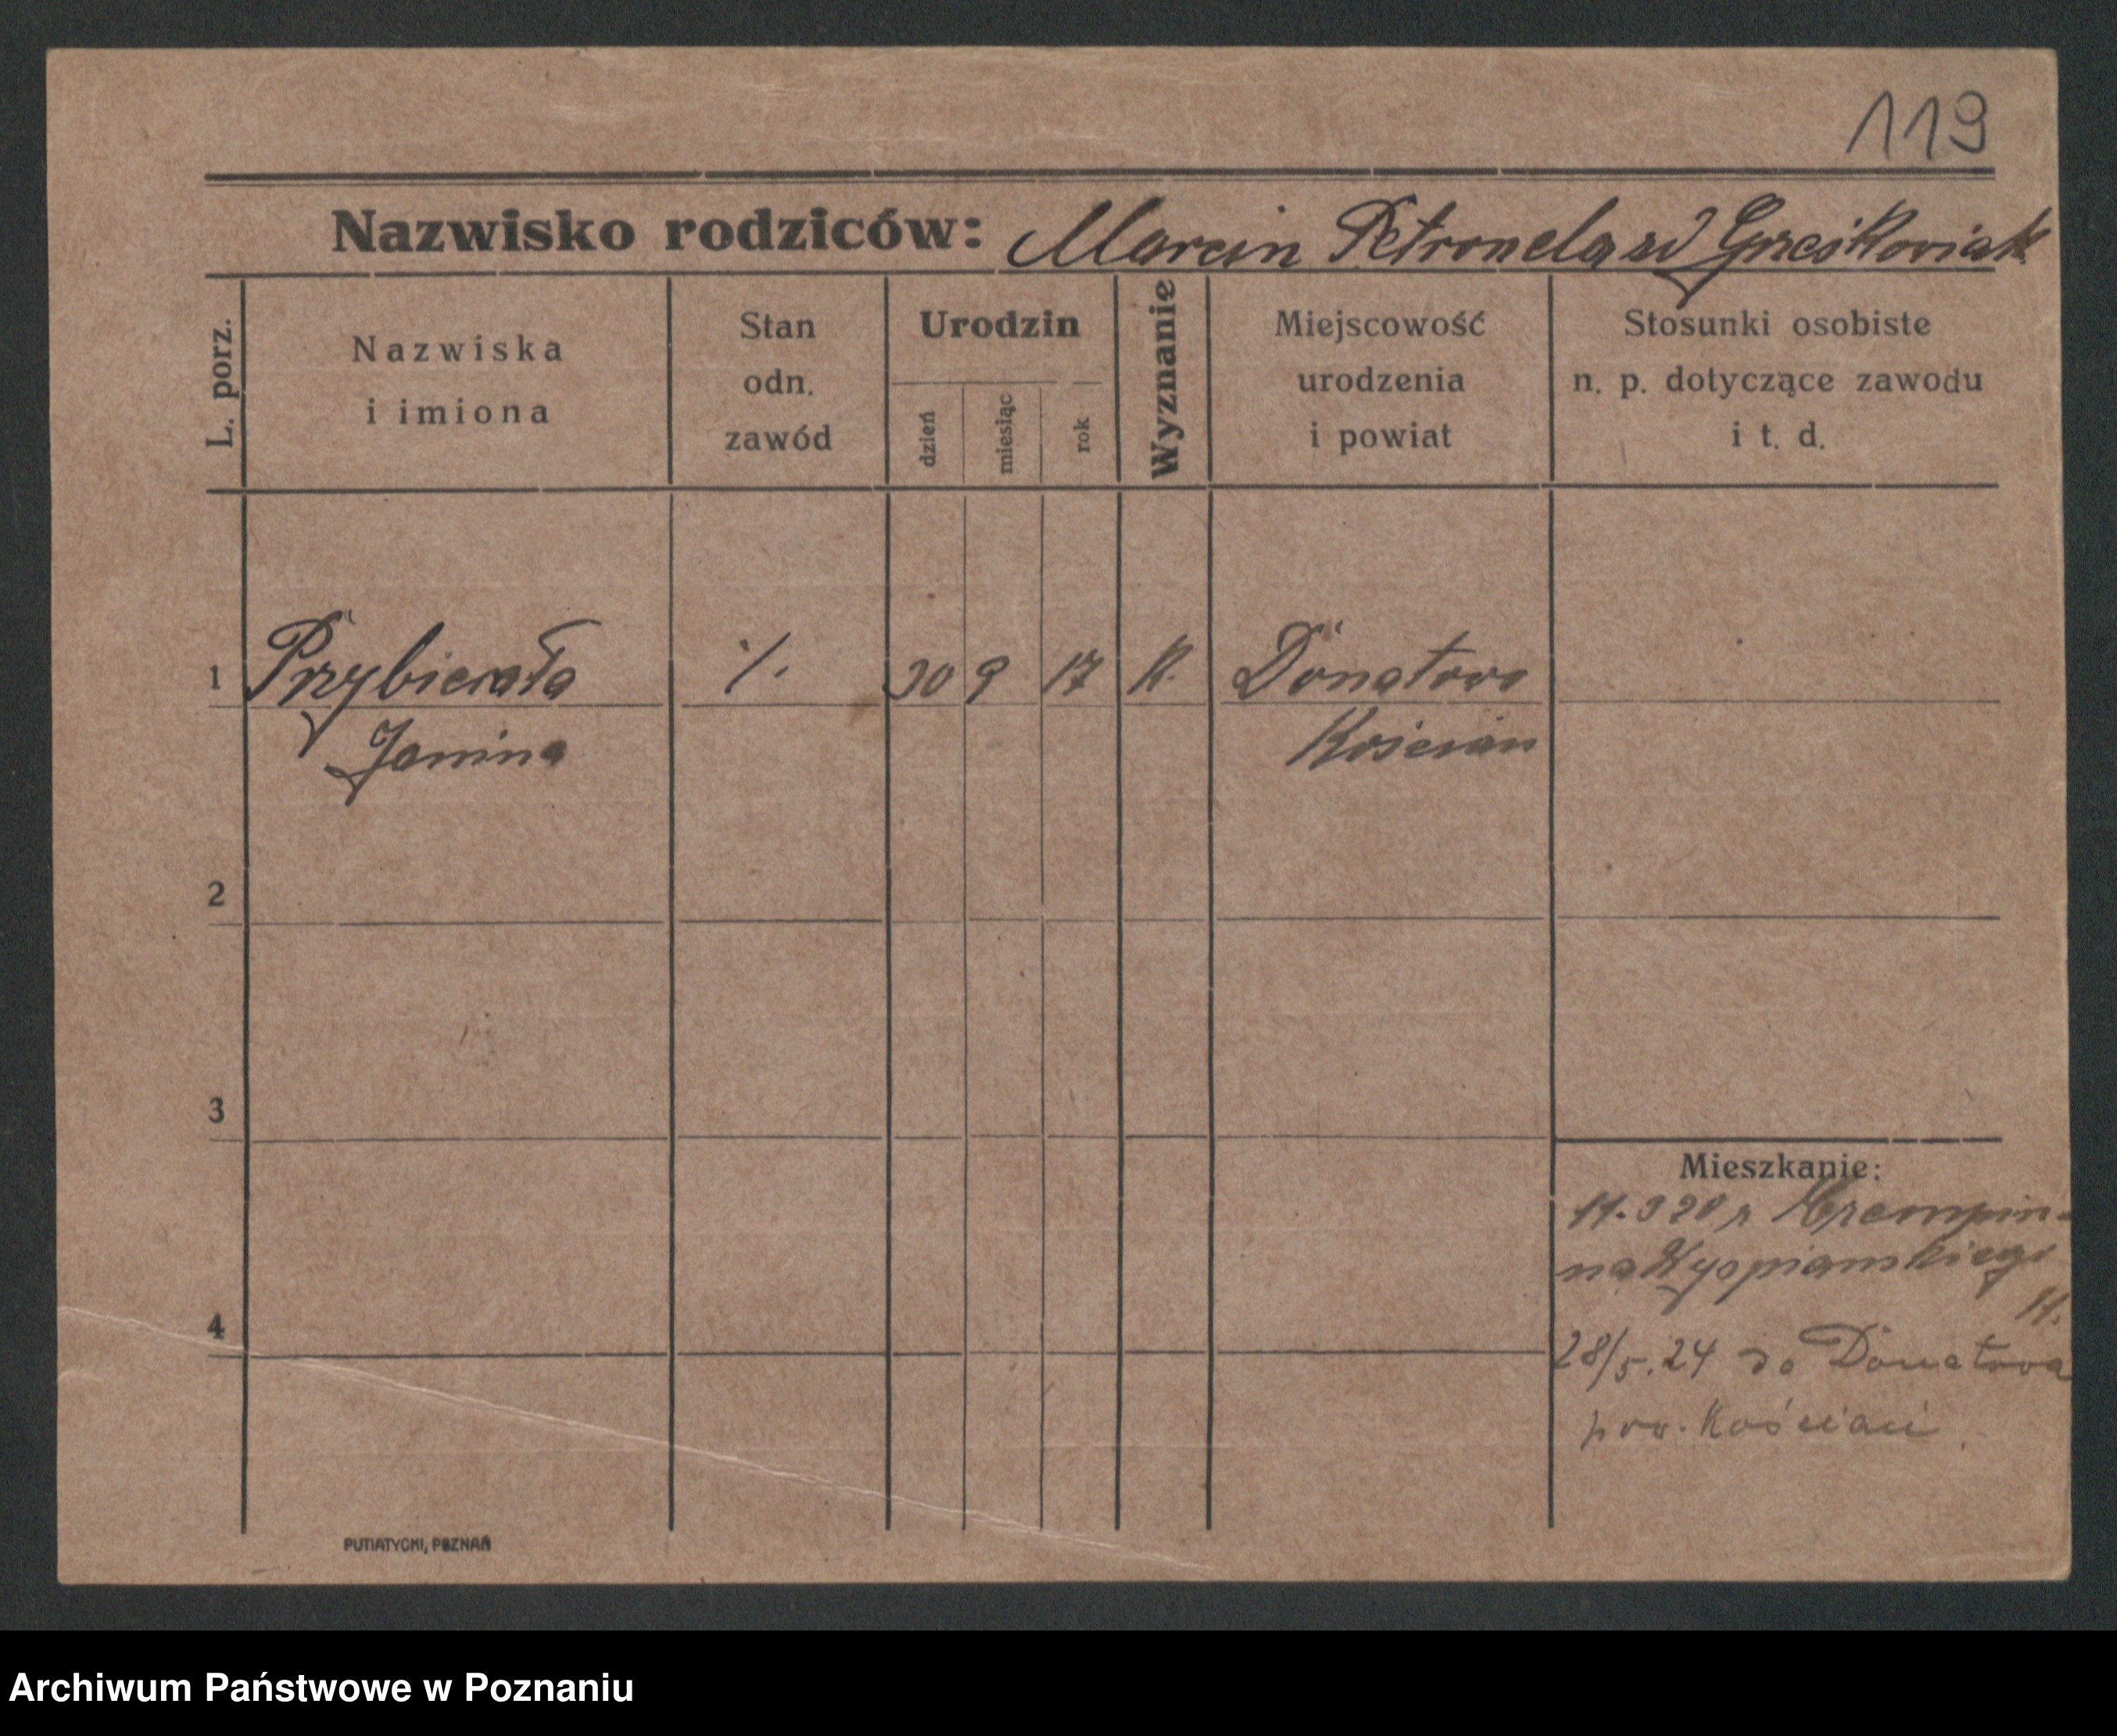 119
Nazwisko rodziców: Marcin Petronela zd Grześkowiak
L. porz.
Nazwiska
i imiona
Stan
odn.
zawód
Urodzin
dzień
miesiąc
rok
Wyznanie
Miejscowość
urodzenia
i powiat
Stosunki osobiste
n. p. dotyczące zawodu
i t. d.
1 Przybierała ./. 30 9 17 K. Donatowo
Janina Kościan
2
3
4
Mieszkanie:
na Wyspianskiego
28/5.24 do Donatowa
pow. Kościan
PUTIATYCKI, POZNAŃ
Archiwum Państwowe w Poznaniu